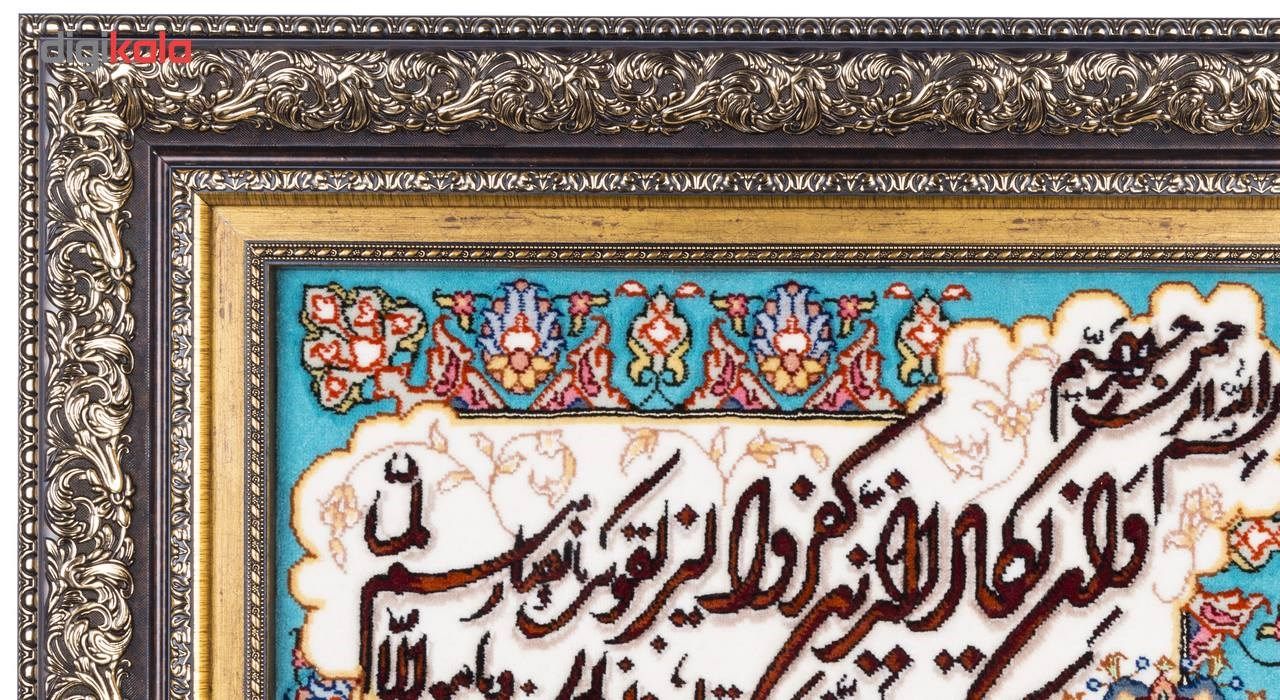 digikala
بسم الله الرحمن الرحیم
وان یکاد الذین کفروا لیزلقونک بابصارهم لما